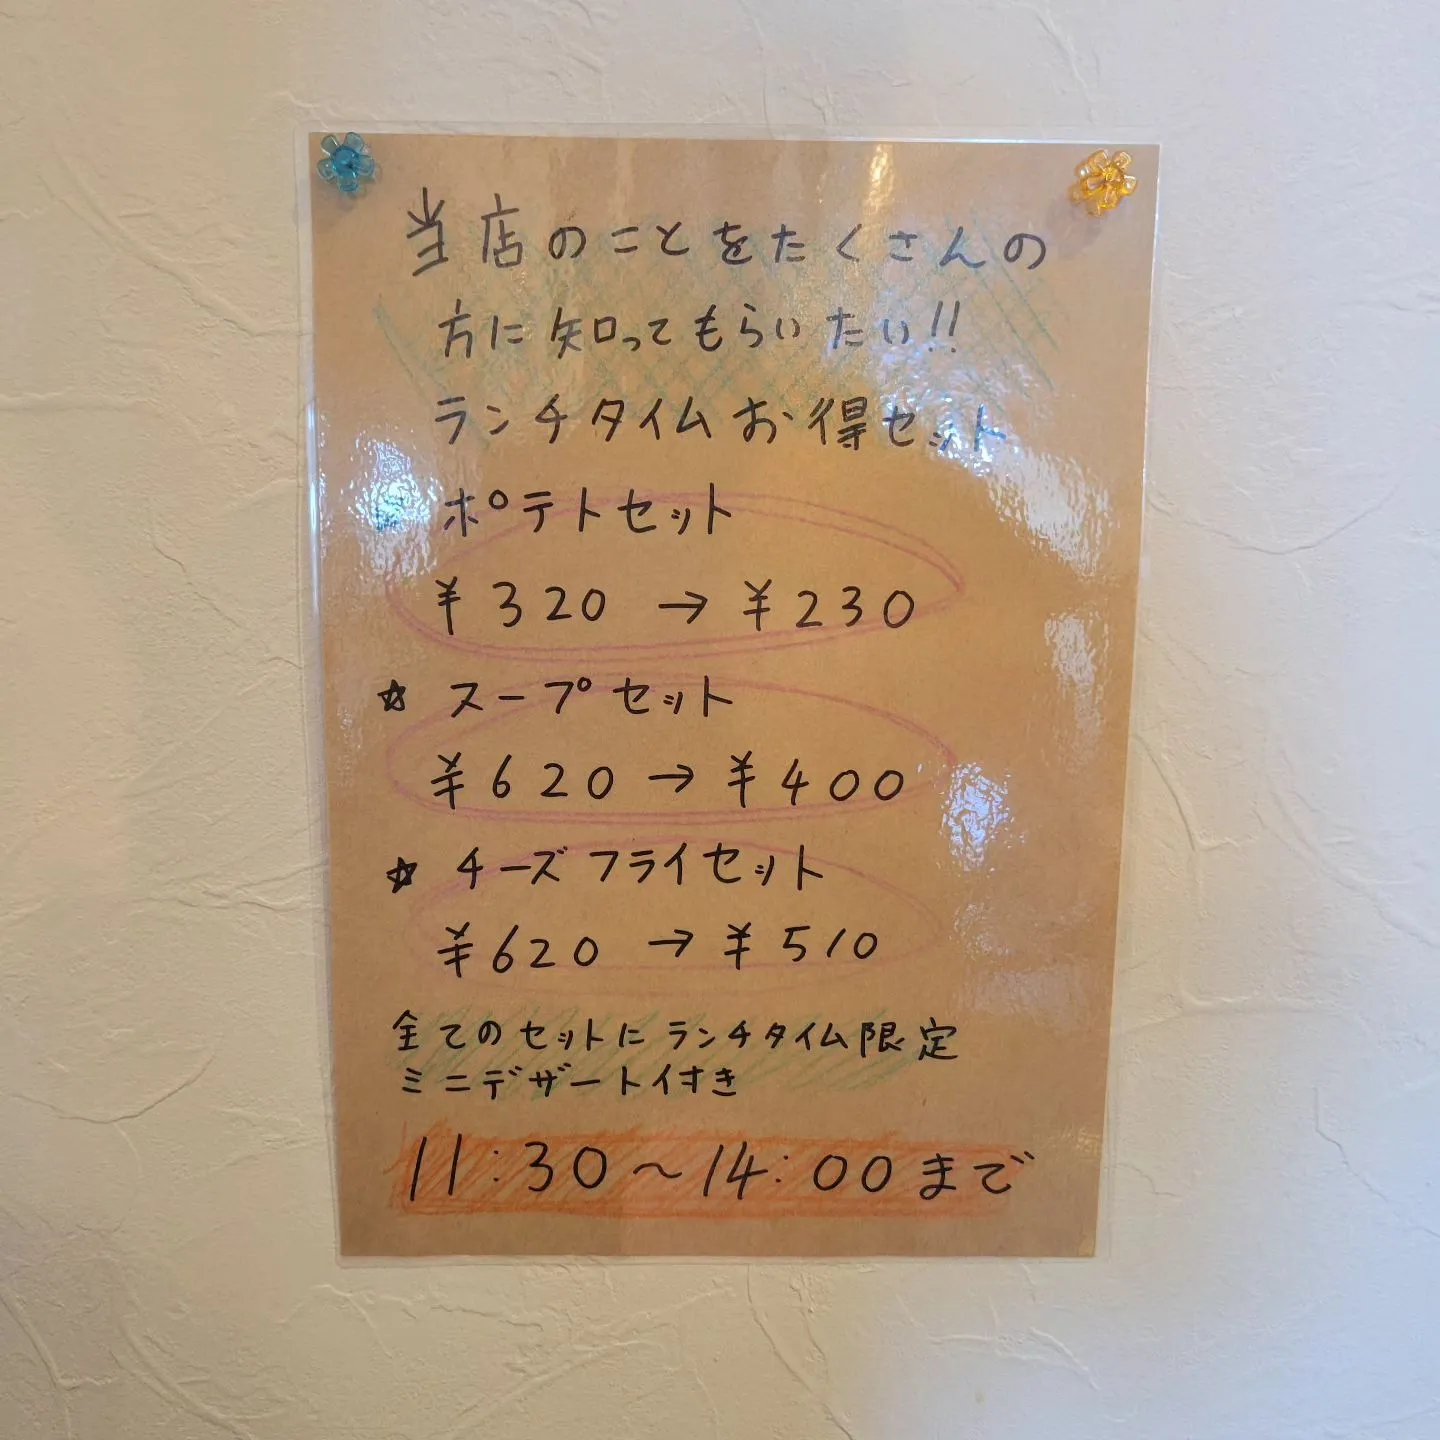 当店のことをたくさんの
方に知ってもらいたい!!
ランチタイムお得セット
ポテトセット
¥320→¥230
☆ スープセット
¥620→¥400
☆ チーズフライセット
¥620→¥510
全てのセットにランチタイム限定
ミニデザート付き
11:30〜14:00まで